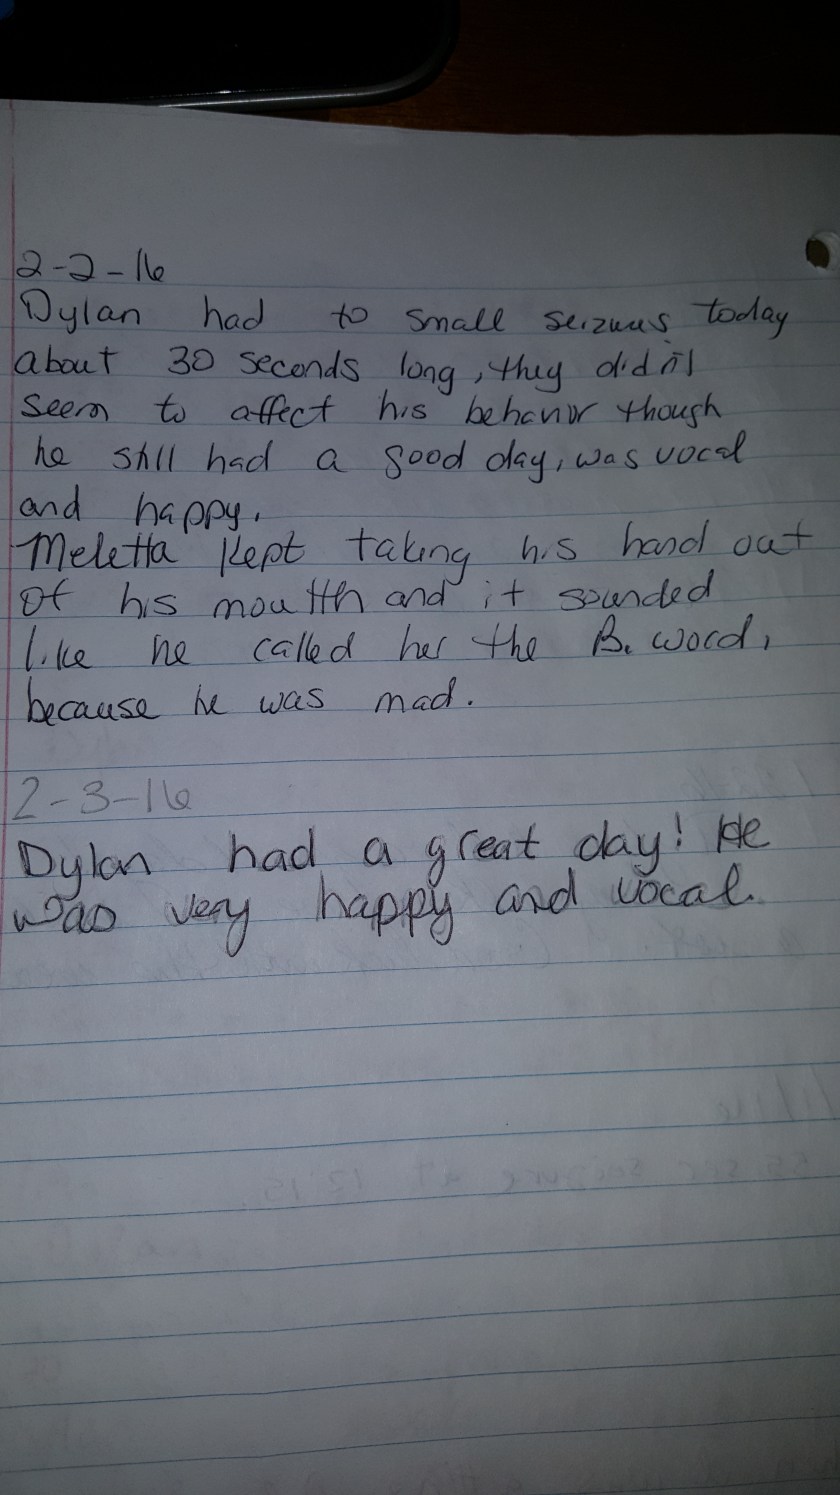 2-2-16
Dylan had to small seizures today
about 30 seconds long, they didn't
seem to affect his behavior though
he still had a good day, was vocal
and happy.
Meletta kept taking his hand out
of his moutth and it sounded
like he called her the B. word,
because he was mad.
2-3-16
Dylan had a great day! He
was very happy and vocal.
sec seizure at 12:15.